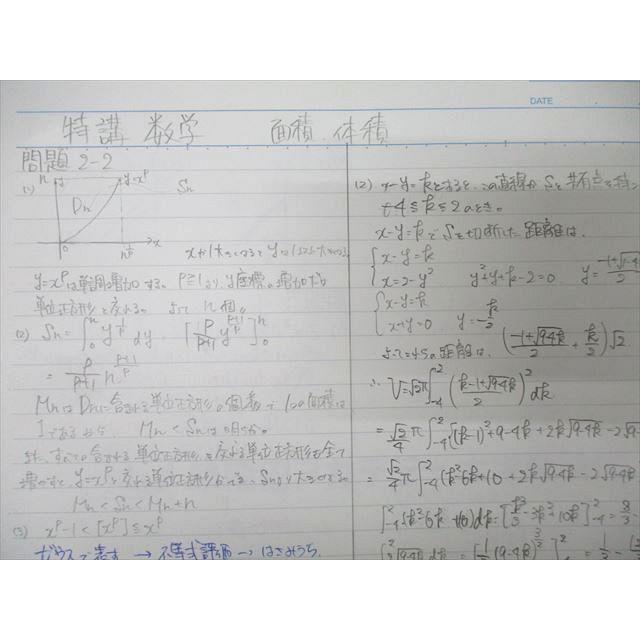 DATE
特講 数学 面積 体積
問題 2-2
(1)
n y y=x^p
Dn Sn
0 n^{1/p} x
xが1大きくなるとyは1以上大きくなる
y=x^pは単調増加する。P≧1より、y座標の増加
単位正方形と交わる。よって n個。
(2) Sn=∫_0^n y^{1/p} dy = [p/(p+1) y^{(p+1)/p}]_0^n
= p/(p+1) n^{(p+1)/p}
MnはDnに含まれる単位正方形の個数で 1つの面積は
1であるから Mn<Snは明らか。
また、すべての含まれる単位正方形と交わる単位正方形を全て
y=x^pと交わる単位正方形 Snより大きくなる
Mn<Sn<Mn+n
(3) x^p-1<[x^p]≦x^p
ガウスで表す → 不等式評価 → はさみうち
(2) x-y=kとすると、この直線がSと共有点を持つ
-4≦k≦2のとき。
x-y=kでSを切断した距離は、
{x-y=k
x=2-y² y²+y+k-2=0 y=
{x-y=k
x+y=0 y=-k/2
よって 距離は、 (-1+√(9-4k)/2 + k/2)√2
∴ V=√2π∫_{-4}^{2} (k-1+√(9-4k)/2)² dk
=√2/4 π∫_{-4}^{2} {(k-1)²+9-4k+2k√(9-4k)-2√
=√2/4 π∫_{-4}^{2} (k²-6k+10+2k√(9-4k)-2√(9-4k)
∫_{-4}^{2} (k²-6k+10)dk=[k³/3-3k²+10k]_{-4}^{2}=8/3-
∫ √(9-4k) dk=